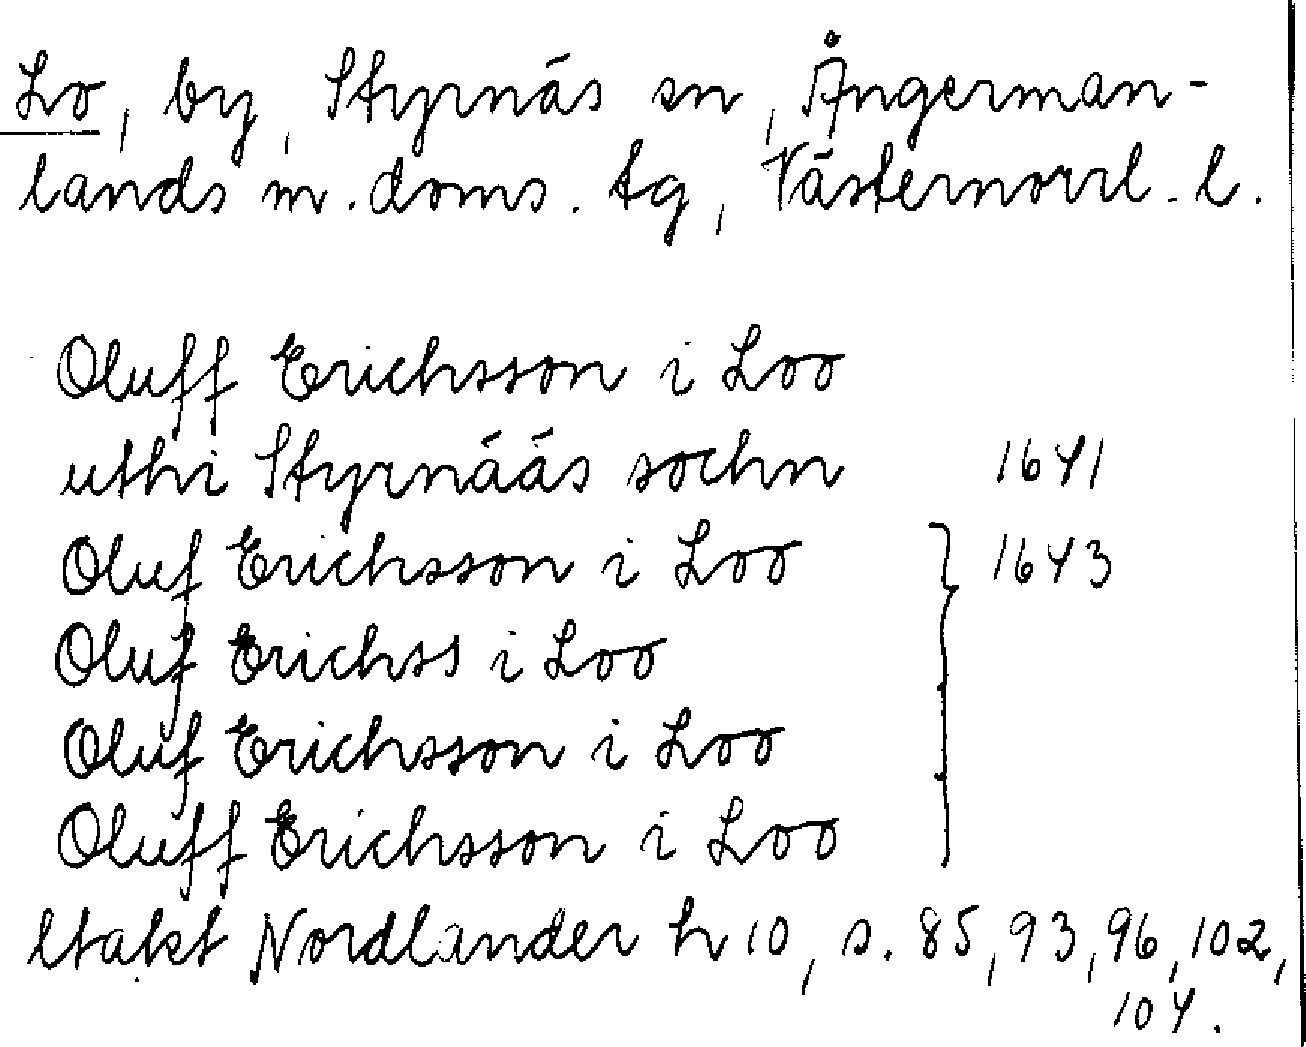 Lo, by, Styrnäs sn, Ångerman-
lands m. doms. tg, Västernorrl. l.
Oluff Erichsson i Loo
uthi Styrnääs sochn 1641
Oluf Erichsson i Loo } 1643
Oluf Erichss i Loo
Oluf Erichsson i Loo
Oluff Erichsson i Loo
Utakt Nordlander h 10, s. 85, 93, 96, 102,
104.